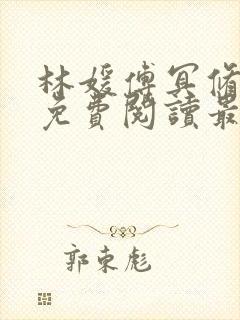 林媛傅冥脩
免費閱讀最
郭東彪